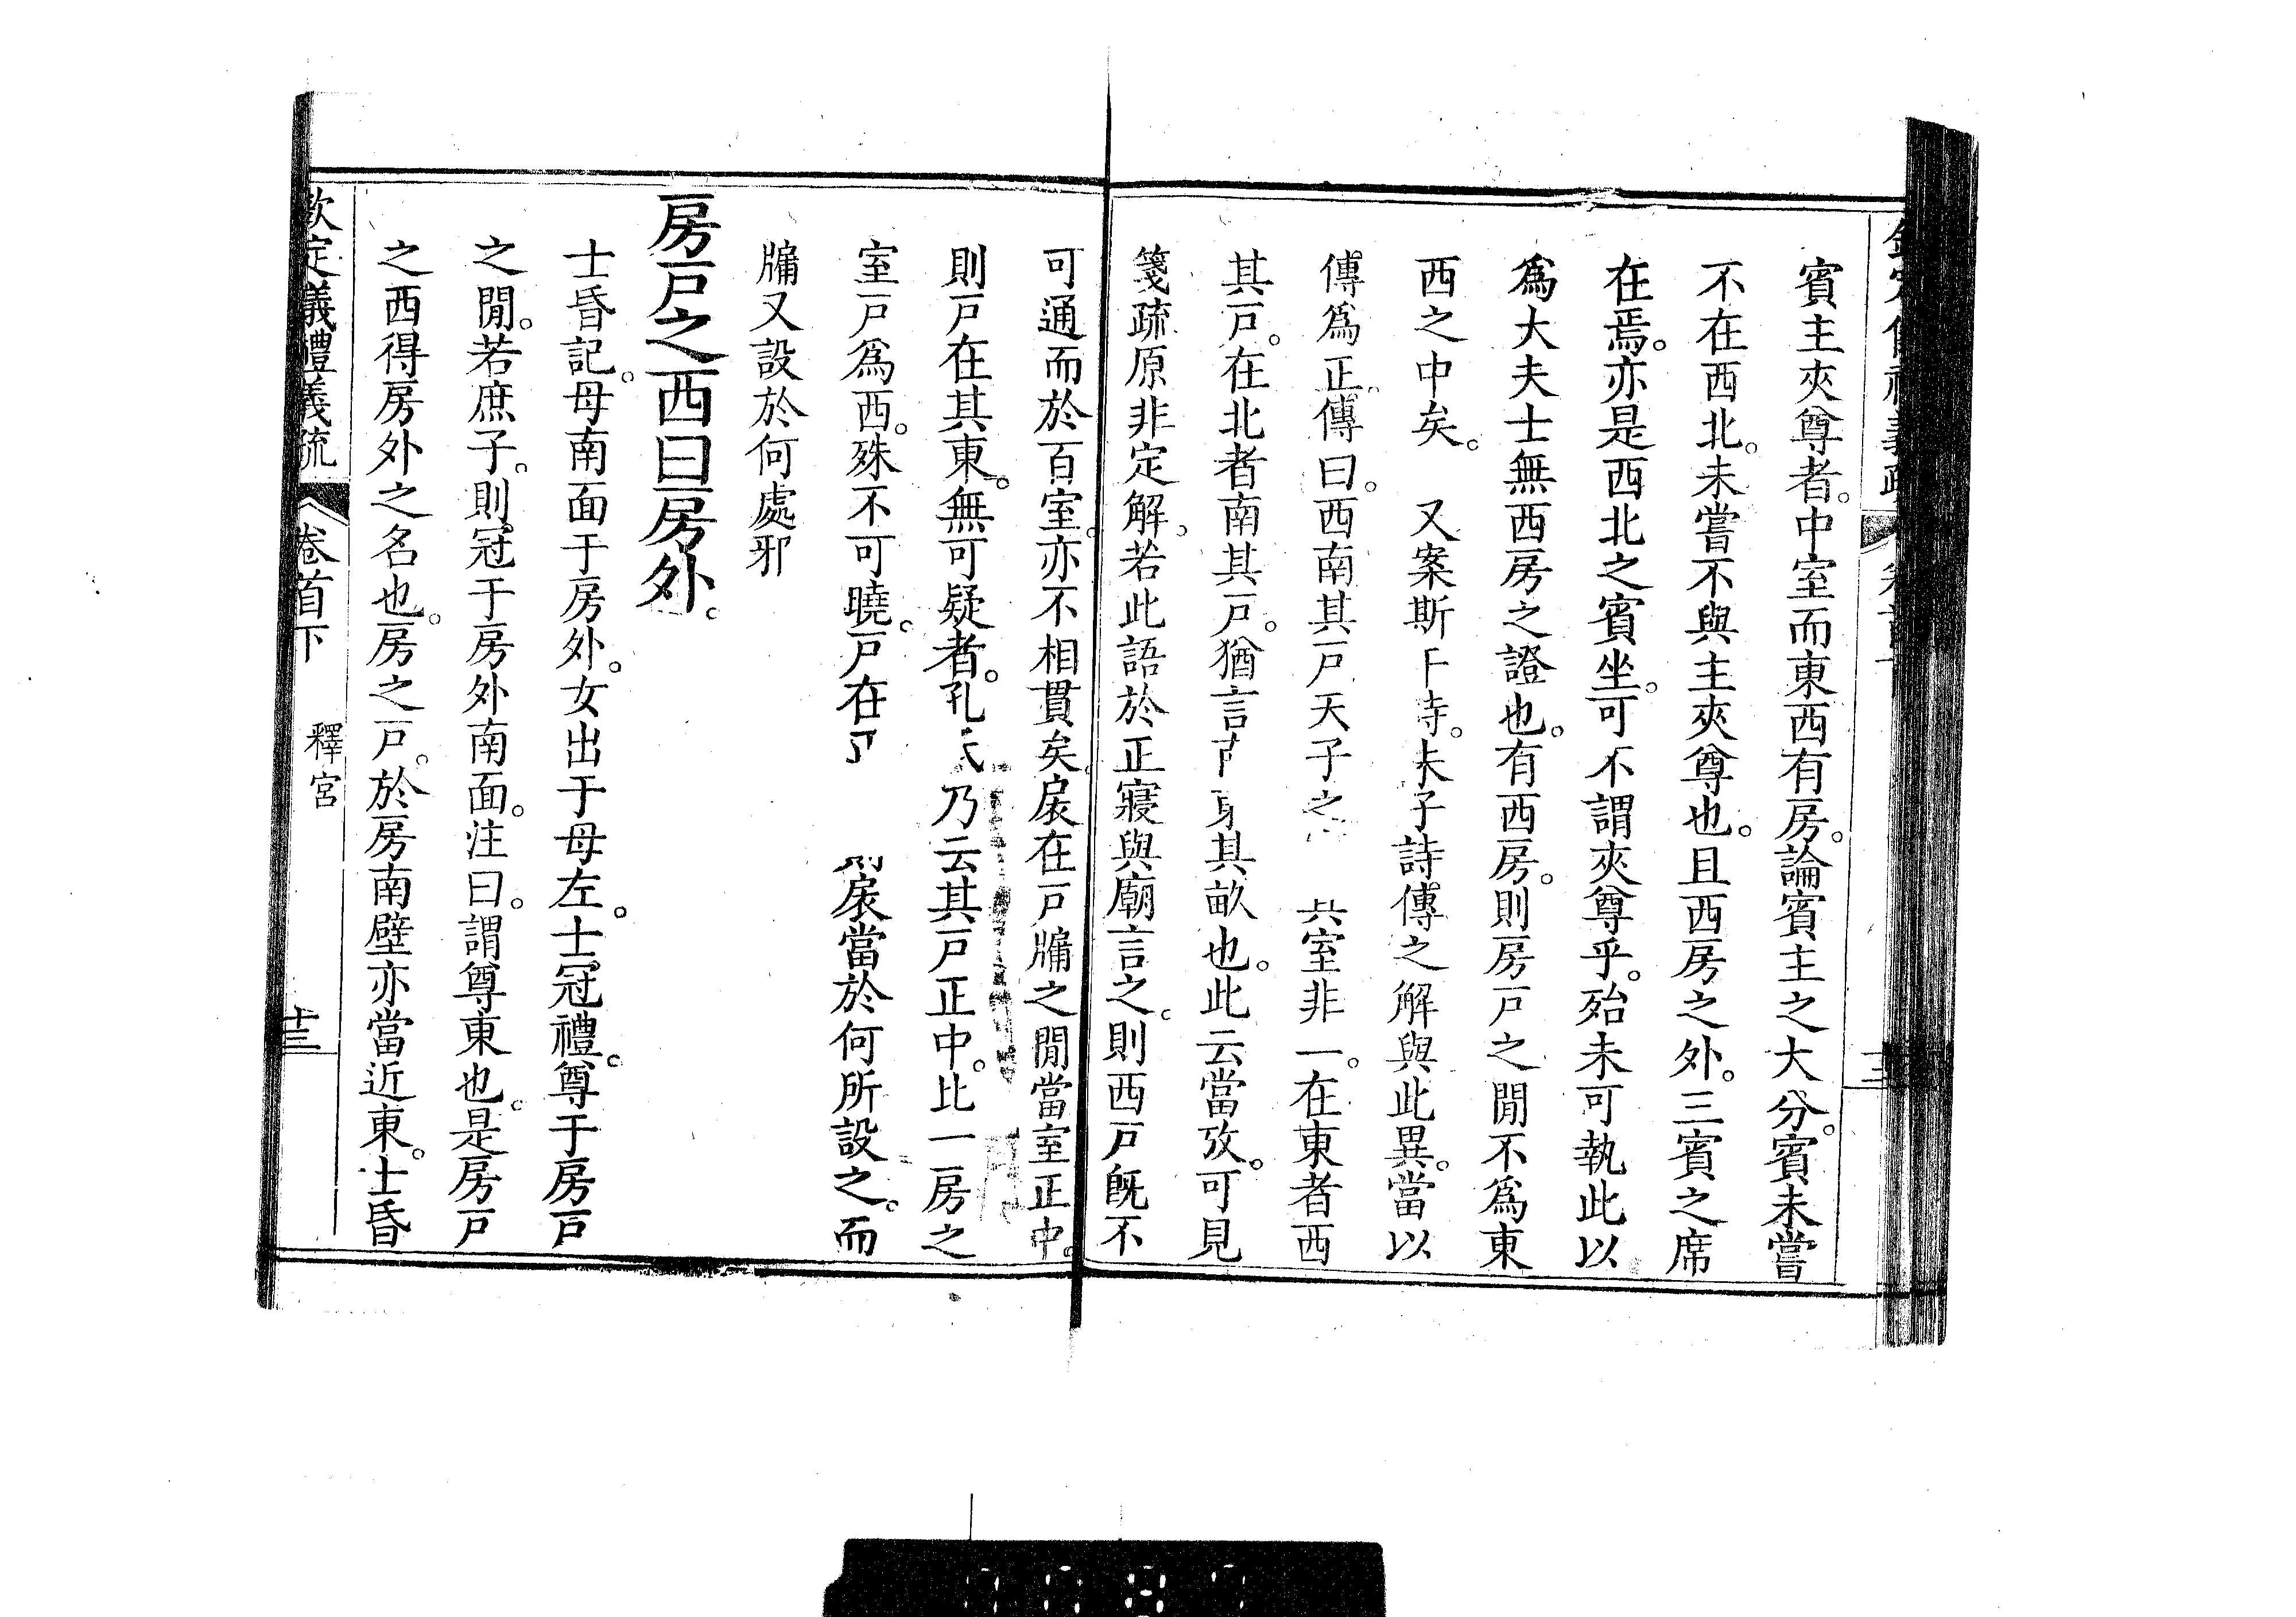 賓主夾尊者。中室而東西有房。論賓主之大分。賓未嘗
不在西北。未嘗不與主夾尊也。且西房之外。三賓之席
在焉。亦是西北之賓坐。可不謂夾尊乎。殆未可執此以
爲大夫士無西房之證也。有西房。則房戸之閒不爲東
西之中矣。 又案斯干詩。朱子詩傳之解與此異。當以
傳爲正。傳曰。西南其戸天子之 室非一。在東者西
其戸。在北者南其戸。猶言 其畝也。此云當攷。可見
箋疏原非定解。若此語於正寢與廟言之。則西戸旣不
可通而於百室。亦不相貫矣。扆在戸牖之閒當室正中。
則戸在其東。無可疑者。孔氏乃云其戸正中。比一房之
室戸爲西。殊不可曉。戸在 則扆當於何所設之。而
牖又設於何處邪
房戸之西曰房外。
士昏記。母南面于房外。女出于母左。士冠禮。尊于房戸
之閒。若庶子。則冠于房外南面。注曰。謂尊東也。是房戸
之西得房外之名也。房之戸。於房南壁亦當近東。士昏
欽定儀禮義疏 卷首下 釋宮 十三